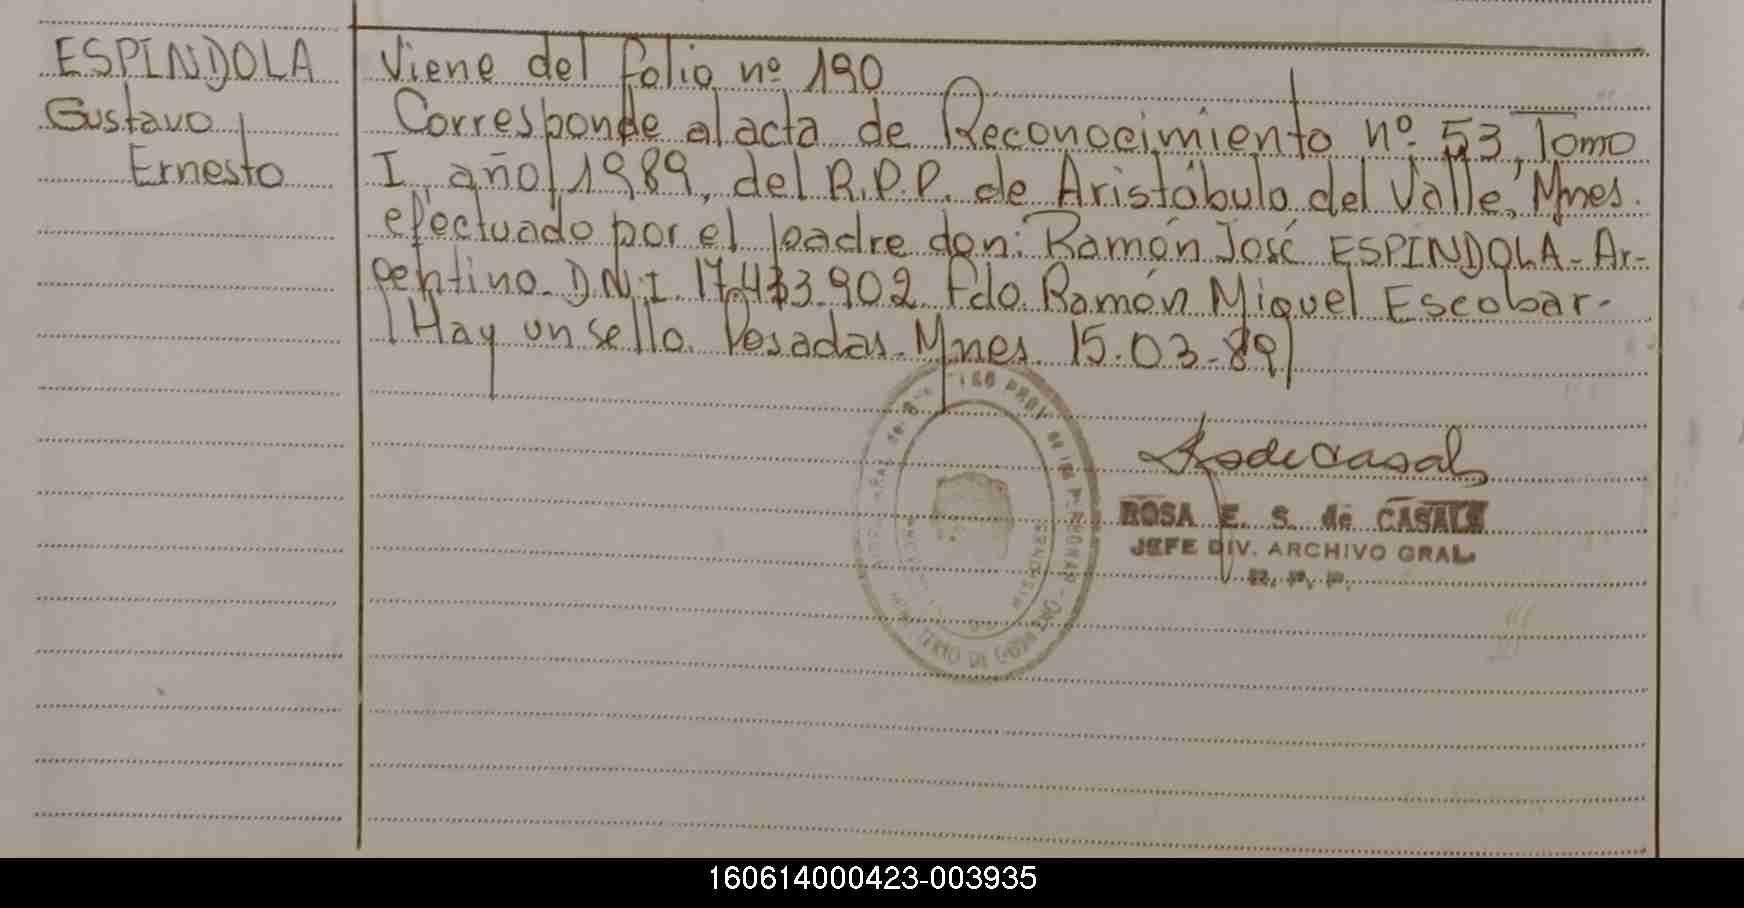 ESPINDOLA
Gustavo
Ernesto
Viene del folio nº 190
Corresponde al acta de Reconocimiento nº 53, Tomo
I, año 1989, del R.P.P. de Aristóbulo del Valle, Mnes.
efectuado por el padre don: Ramón José ESPINDOLA - Ar-
gentino. D.N.I. 17.433.902. Fdo. Ramón Miguel Escobar.
Hay un sello. Posadas. Mnes. 15.03.89
ROSA E. S. de CASALS
JEFE DIV. ARCHIVO GRAL.
R. P. P.
160614000423-003935